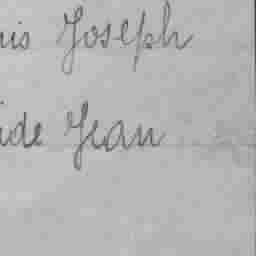 is Joseph
ide Jean